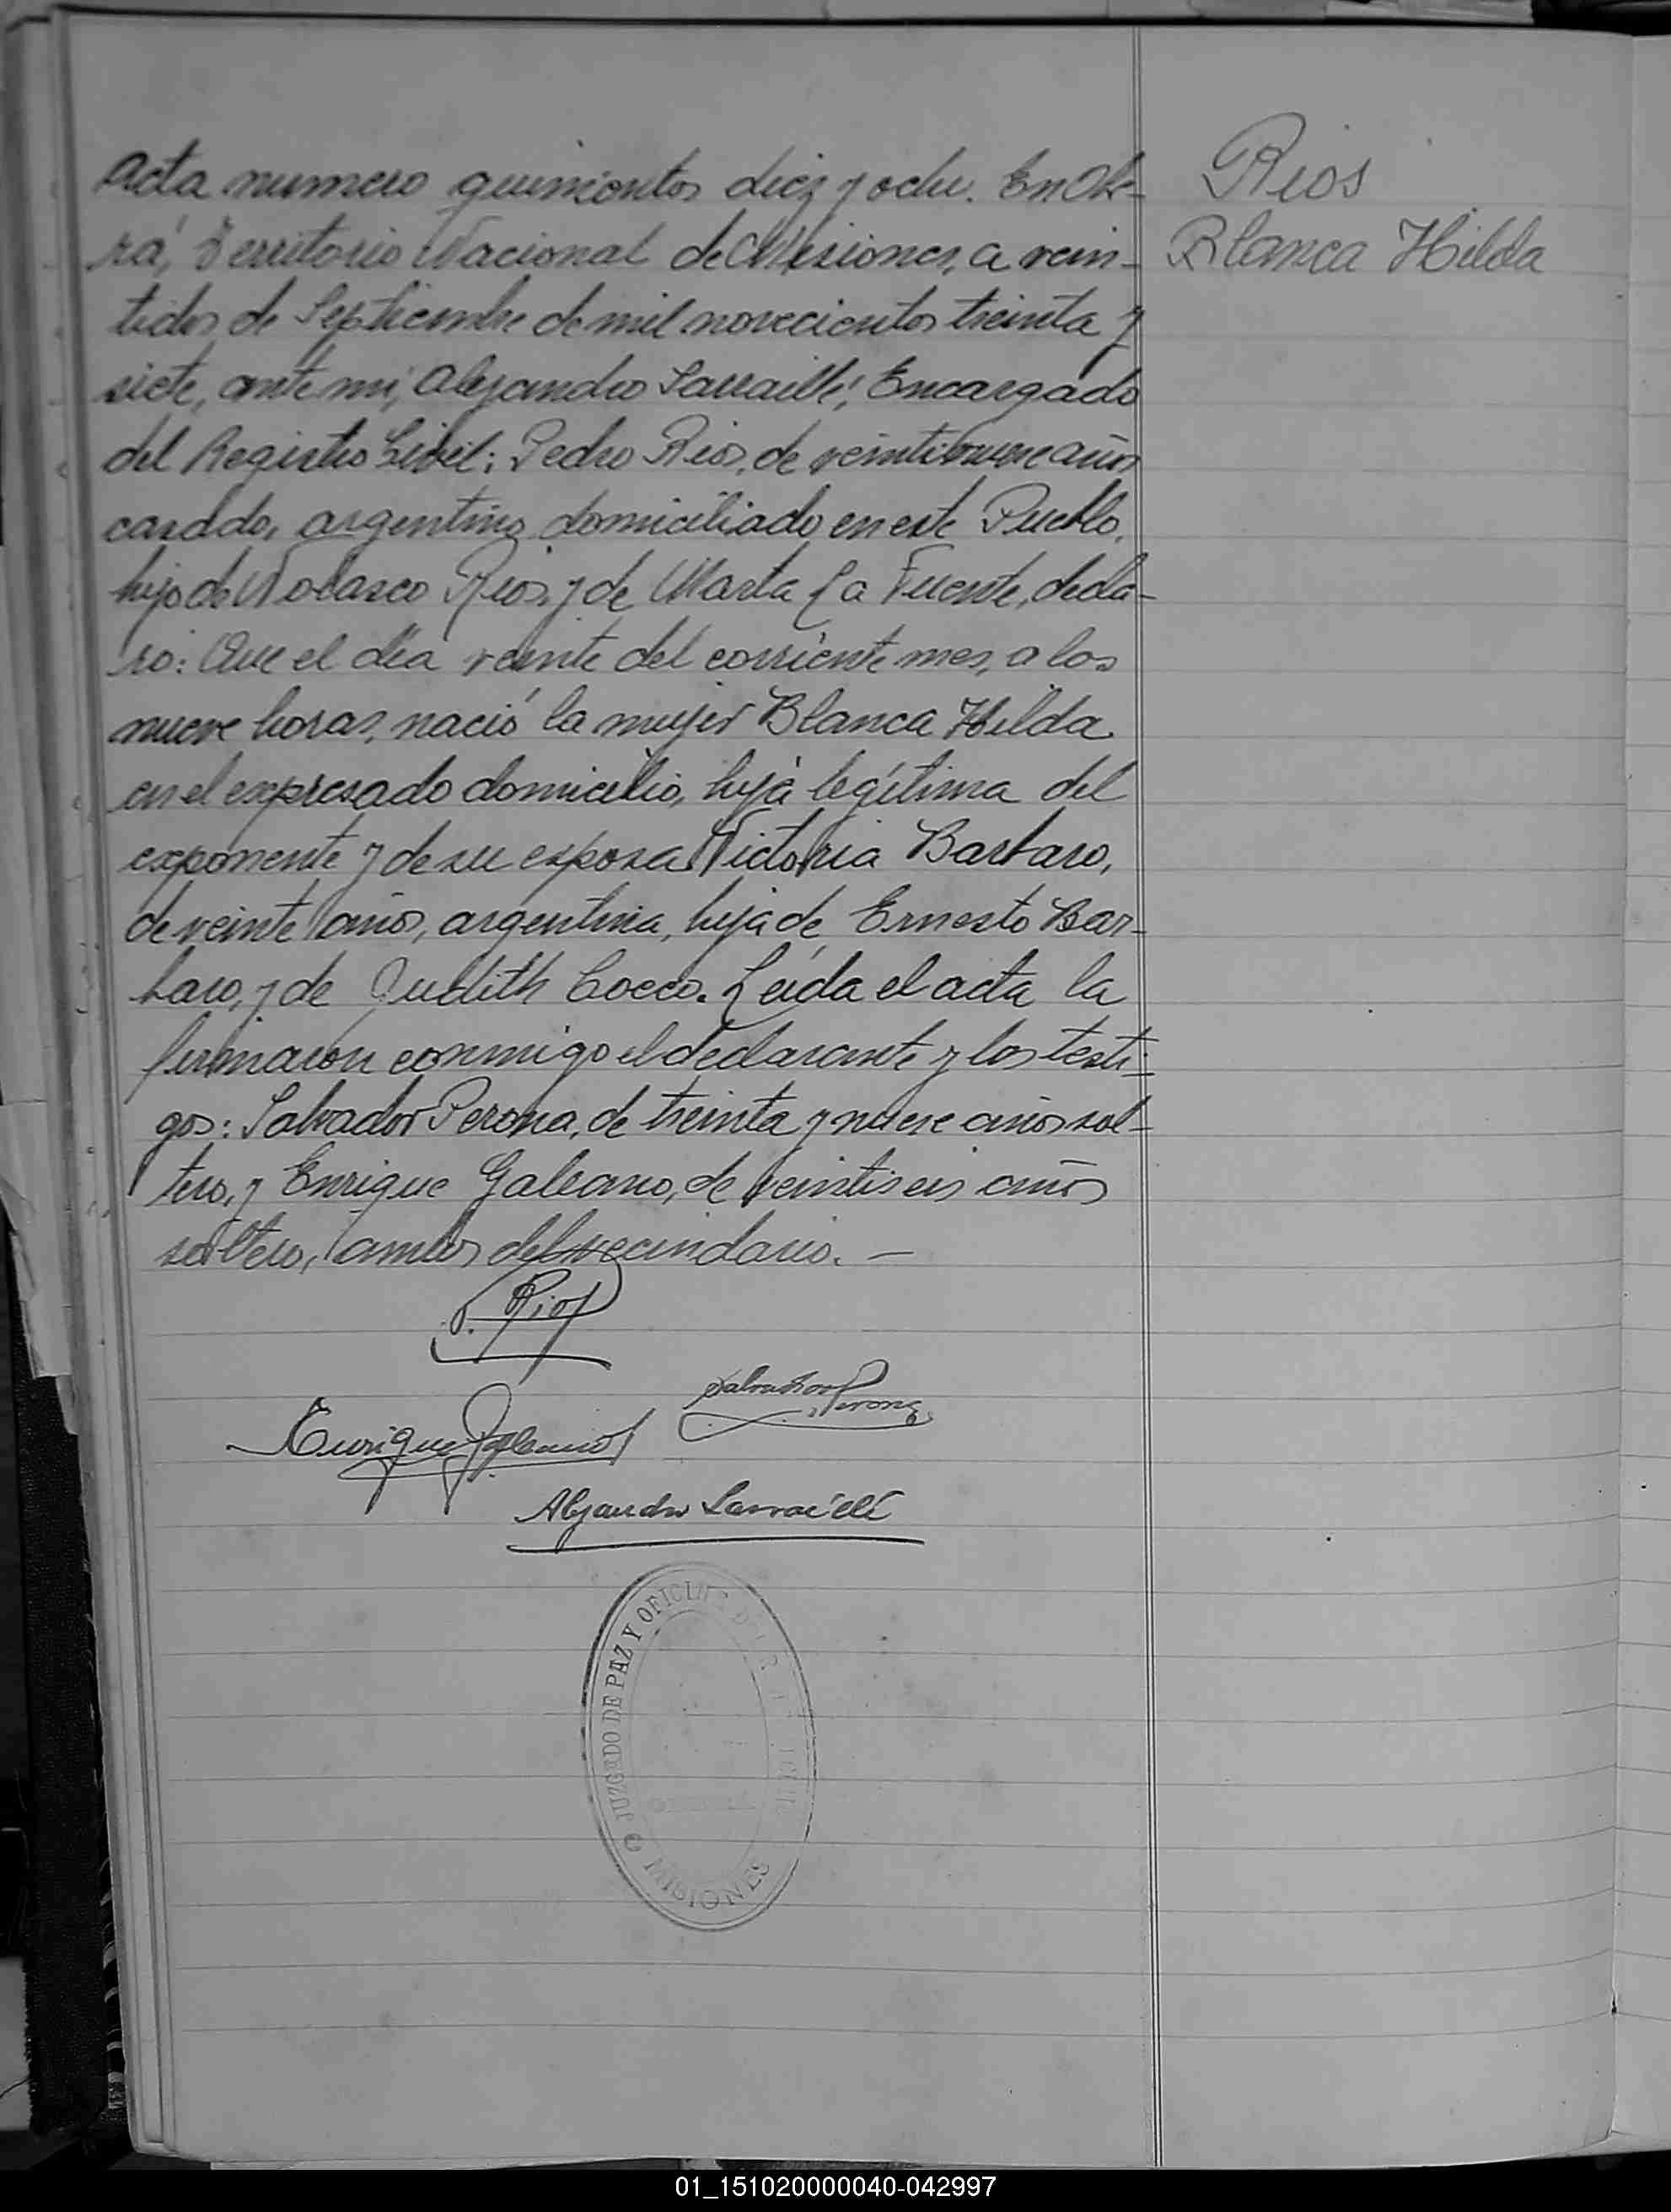 Acta numero quinientos diez y ocho. En Obe-
rá, Territorio Nacional de Misiones, a vein-
tidos de Septiembre de mil novecientos treinta y
siete, ante mi, Alejandro Sarraillé, Encargado
del Registro Civil: Pedro Rios, de veintinueve años
casado, argentino, domiciliado en este Pueblo,
hijo de Nolasco Rios, y de Marta La Fuente, decla-
ró: Que el día veinte del corriente mes, a las
nueve horas, nació la mujer Blanca Hilda
en el expresado domicilio, hija legítima del
exponente y de su esposa Victoria Barbaro,
de veinte años, argentina, hija de Ernesto Bar-
baro, y de Judith Cocco. Leída el acta la
firmaron conmigo el declarante y los testi-
gos: Salvador Perona, de treinta y nueve años sol-
tero, y Enrique Galeano, de veintiseis años
soltero, ambos del vecindario. —
Rios
Blanca Hilda
P. Rios
Salvador Perona
Enrique Galeano
Alejandro Sarraillé
JUZGADO DE PAZ Y OFICINA
MISIONES
01_151020000040-042997